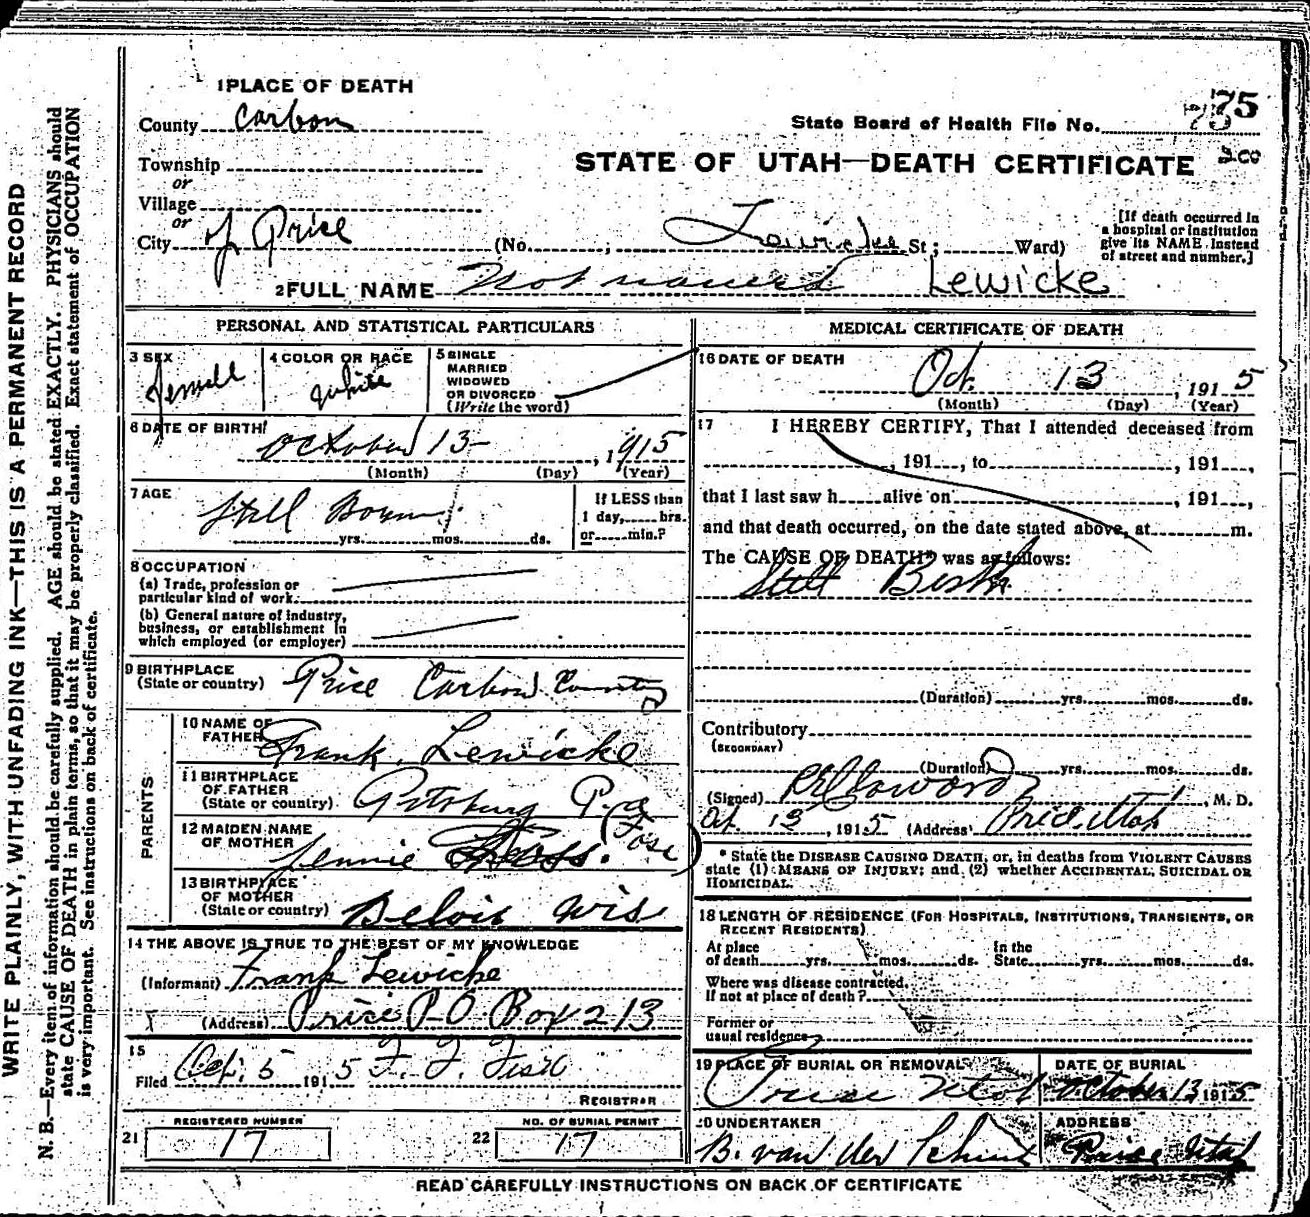 1 PLACE OF DEATH
75
County Carbon
State Board of Health File No. 75
Township
STATE OF UTAH—DEATH CERTIFICATE
or
Village
or
City of Price (No. ; Lewicke St; Ward)
[If death occurred in a hospital or institution give its NAME instead of street and number.]
2 FULL NAME Not named Lewicke
PERSONAL AND STATISTICAL PARTICULARS
3 SEX
4 COLOR OR RACE White
5 SINGLE
MARRIED
WIDOWED
OR DIVORCED
(Write the word)
6 DATE OF BIRTH
October 13 , 1915
(Month) (Day) (Year)
7 AGE
Still Born
yrs. mos. ds.
If LESS than
1 day, hrs.
or min.?
8 OCCUPATION
(a) Trade, profession or
particular kind of work
(b) General nature of industry,
business, or establishment in
which employed (or employer)
9 BIRTHPLACE
(State or country) Price Carbon County
PARENTS
10 NAME OF
FATHER Frank Lewicke
11 BIRTHPLACE
OF FATHER
(State or country) Pittsburg Pa
12 MAIDEN NAME
OF MOTHER Jennie (Fose)
13 BIRTHPLACE
OF MOTHER
(State or country) Beloit Wis
14 THE ABOVE IS TRUE TO THE BEST OF MY KNOWLEDGE
(Informant) Frank Lewicke
(Address) Price P-O Box 213
15
Filed Oct. 5 1915
REGISTRAR
REGISTERED NUMBER
21 17
NO. OF BURIAL PERMIT
22 17
MEDICAL CERTIFICATE OF DEATH
16 DATE OF DEATH
Oct. 13 , 1915
(Month) (Day) (Year)
17 I HEREBY CERTIFY, That I attended deceased from
, 191 , to , 191 ,
that I last saw h alive on , 191 ,
and that death occurred, on the date stated above, at m.
The CAUSE OF DEATH* was as follows:
Still Birth
(Duration) yrs. mos. ds.
Contributory
(SECONDARY)
(Duration) yrs. mos. ds.
(Signed) , M. D.
Oct. 13 , 1915 (Address) Price, Utah
* State the DISEASE CAUSING DEATH, or, in deaths from VIOLENT CAUSES
state (1) MEANS OF INJURY; and (2) whether ACCIDENTAL, SUICIDAL OR
HOMICIDAL.
18 LENGTH OF RESIDENCE (FOR HOSPITALS, INSTITUTIONS, TRANSIENTS, OR
RECENT RESIDENTS)
At place
of death yrs. mos. ds.
In the
State yrs. mos. ds.
Where was disease contracted,
If not at place of death?
Former or
usual residence
19 PLACE OF BURIAL OR REMOVAL
Price Utah
DATE OF BURIAL
October 13 1915
20 UNDERTAKER
B. van der
ADDRESS
Price Utah
READ CAREFULLY INSTRUCTIONS ON BACK OF CERTIFICATE
WRITE PLAINLY, WITH UNFADING INK—THIS IS A PERMANENT RECORD
N. B.—Every item of information should be carefully supplied. AGE should be stated EXACTLY. PHYSICIANS should
state CAUSE OF DEATH in plain terms, so that it may be properly classified. Exact statement of OCCUPATION
is very important. See instructions on back of certificate.